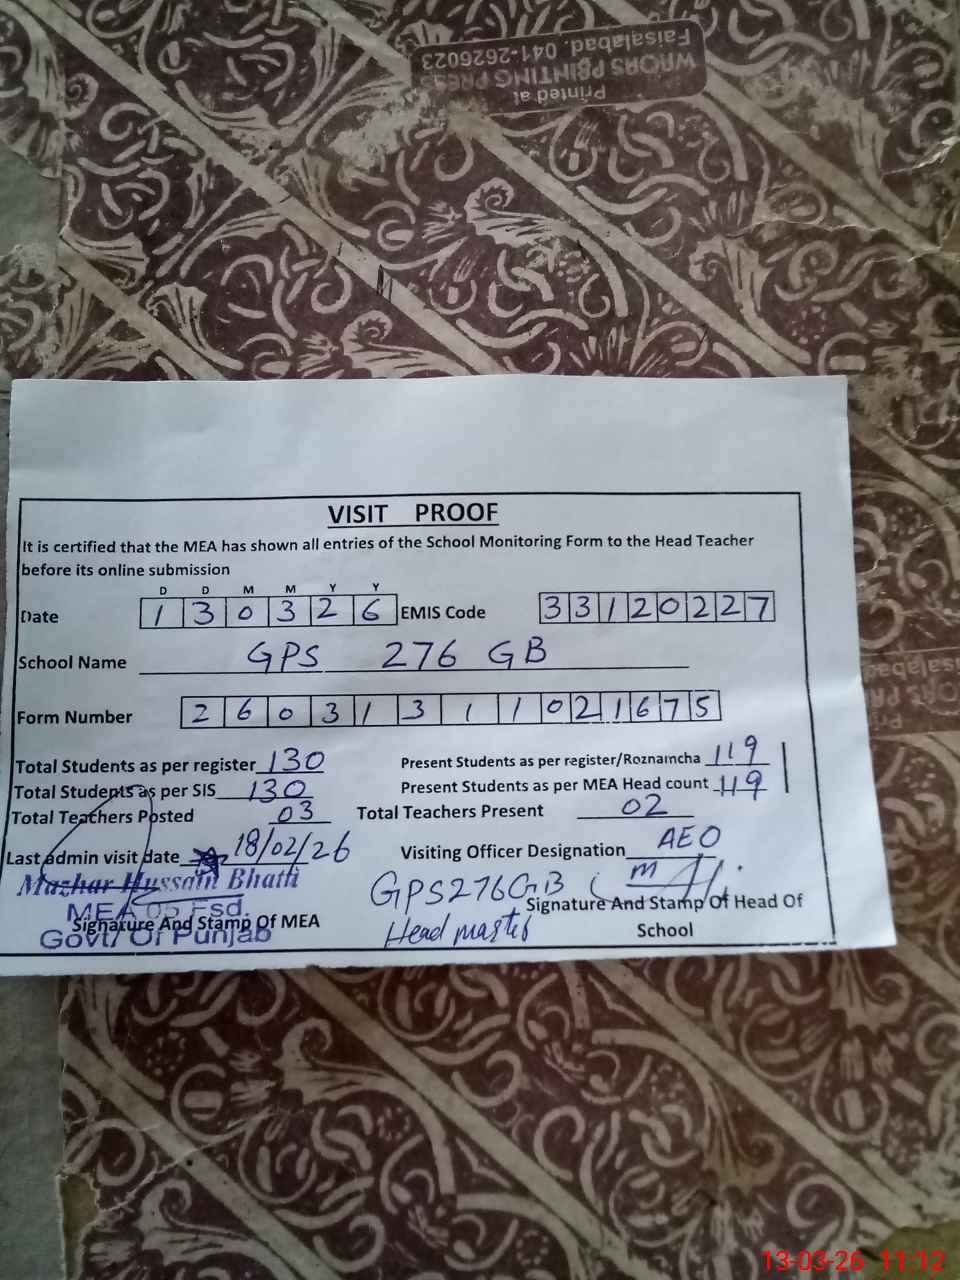 Printed at
WAQAS PRINTING PRESS
Faisalabad. 041-2626023
VISIT PROOF
It is certified that the MEA has shown all entries of the School Monitoring Form to the Head Teacher
before its online submission
D D M M Y Y
Date 1 3 0 3 2 6 EMIS Code 3 3 1 2 0 2 2 7
School Name GPS 276 GB
Form Number 2 6 0 3 1 3 1 1 0 2 1 6 7 5
Total Students as per register 130 Present Students as per register/Roznamcha 119
Total Students as per SIS 130 Present Students as per MEA Head count 119
Total Teachers Posted 03 Total Teachers Present 02
Last admin visit date 18/02/26 Visiting Officer Designation AEO
Mazhar Hussain Bhatti
MEA 05 Fsd.
Govt/ Of Punjab
Signature And Stamp Of MEA
GPS 276 GB
Head master
Signature And Stamp Of Head Of
School
13-03-26 11:12